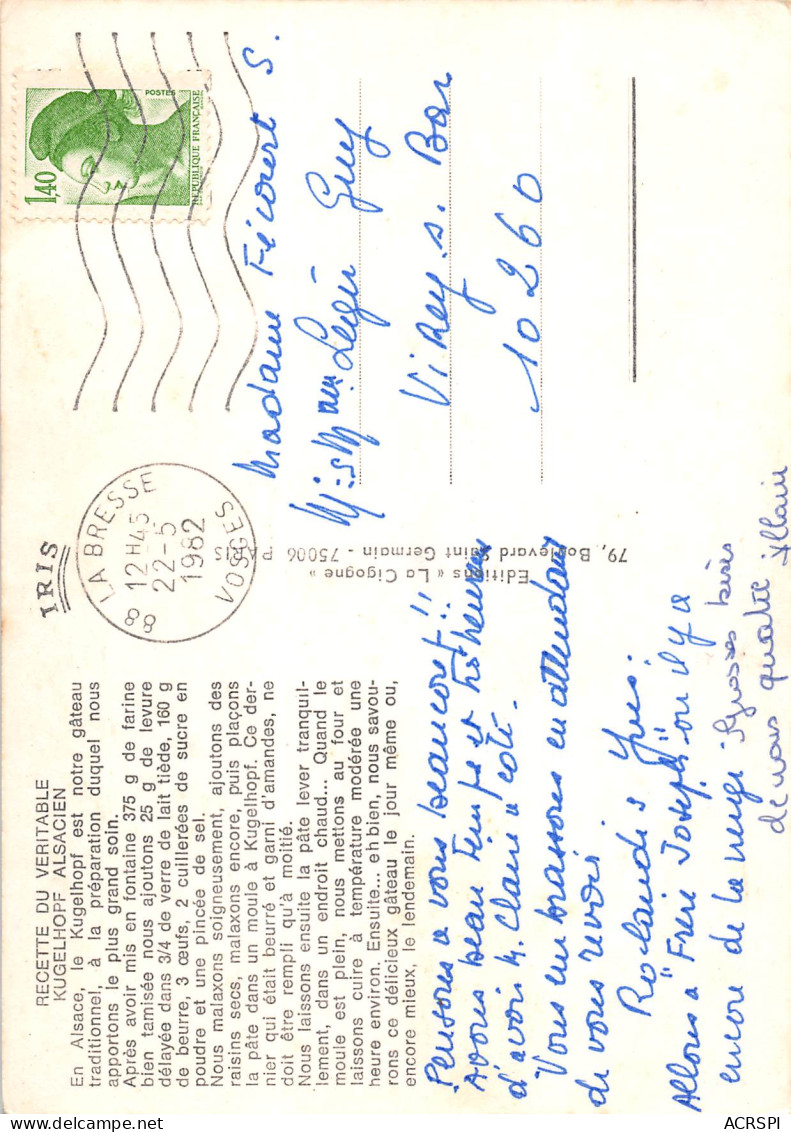 RECETTE DU VERITABLE
KUGELHOPF ALSACIEN
En Alsace, le Kugelhopf est notre gâteau
traditionnel, à la préparation duquel nous
apportons le plus grand soin.
Après avoir mis en fontaine 375 g de farine
bien tamisée nous ajoutons 25 g de levure
délayée dans 3/4 de verre de lait tiède, 160 g
de beurre, 3 œufs, 2 cuillerées de sucre en
poudre et une pincée de sel.
Nous malaxons soigneusement, ajoutons des
raisins secs, malaxons encore, puis plaçons
la pâte dans un moule à Kugelhopf. Ce der-
nier qui était beurré et garni d'amandes, ne
doit être rempli qu'à moitié.
Nous laissons ensuite la pâte lever tranquil-
lement, dans un endroit chaud... Quand le
moule est plein, nous mettons au four et
laissons cuire à température modérée une
heure environ. Ensuite... eh bien, nous savou-
rons ce délicieux gâteau le jour même ou,
encore mieux, le lendemain.
Pensons a vous beaucoup!!
Avons beau temps et très heureux
d'avoir M. Claire a côté.
Vous embrassons en attendant
de vous revoir
Rolande & Yves.
Allons a "Frère Joseph" ou il y a
encore de la neige
Grosses bises
de nous quatre
IRIS
88 LA BRESSE
12 H45
22-5
1982
VOSGES
Editions « La Cigogne »
79, Boulevard Saint Germain - 75006 PARIS
1,40
POSTES
REPUBLIQUE FRANCAISE
Madame Ficourt S.
Guy
Virey s. Bar
10260
ACRSPI